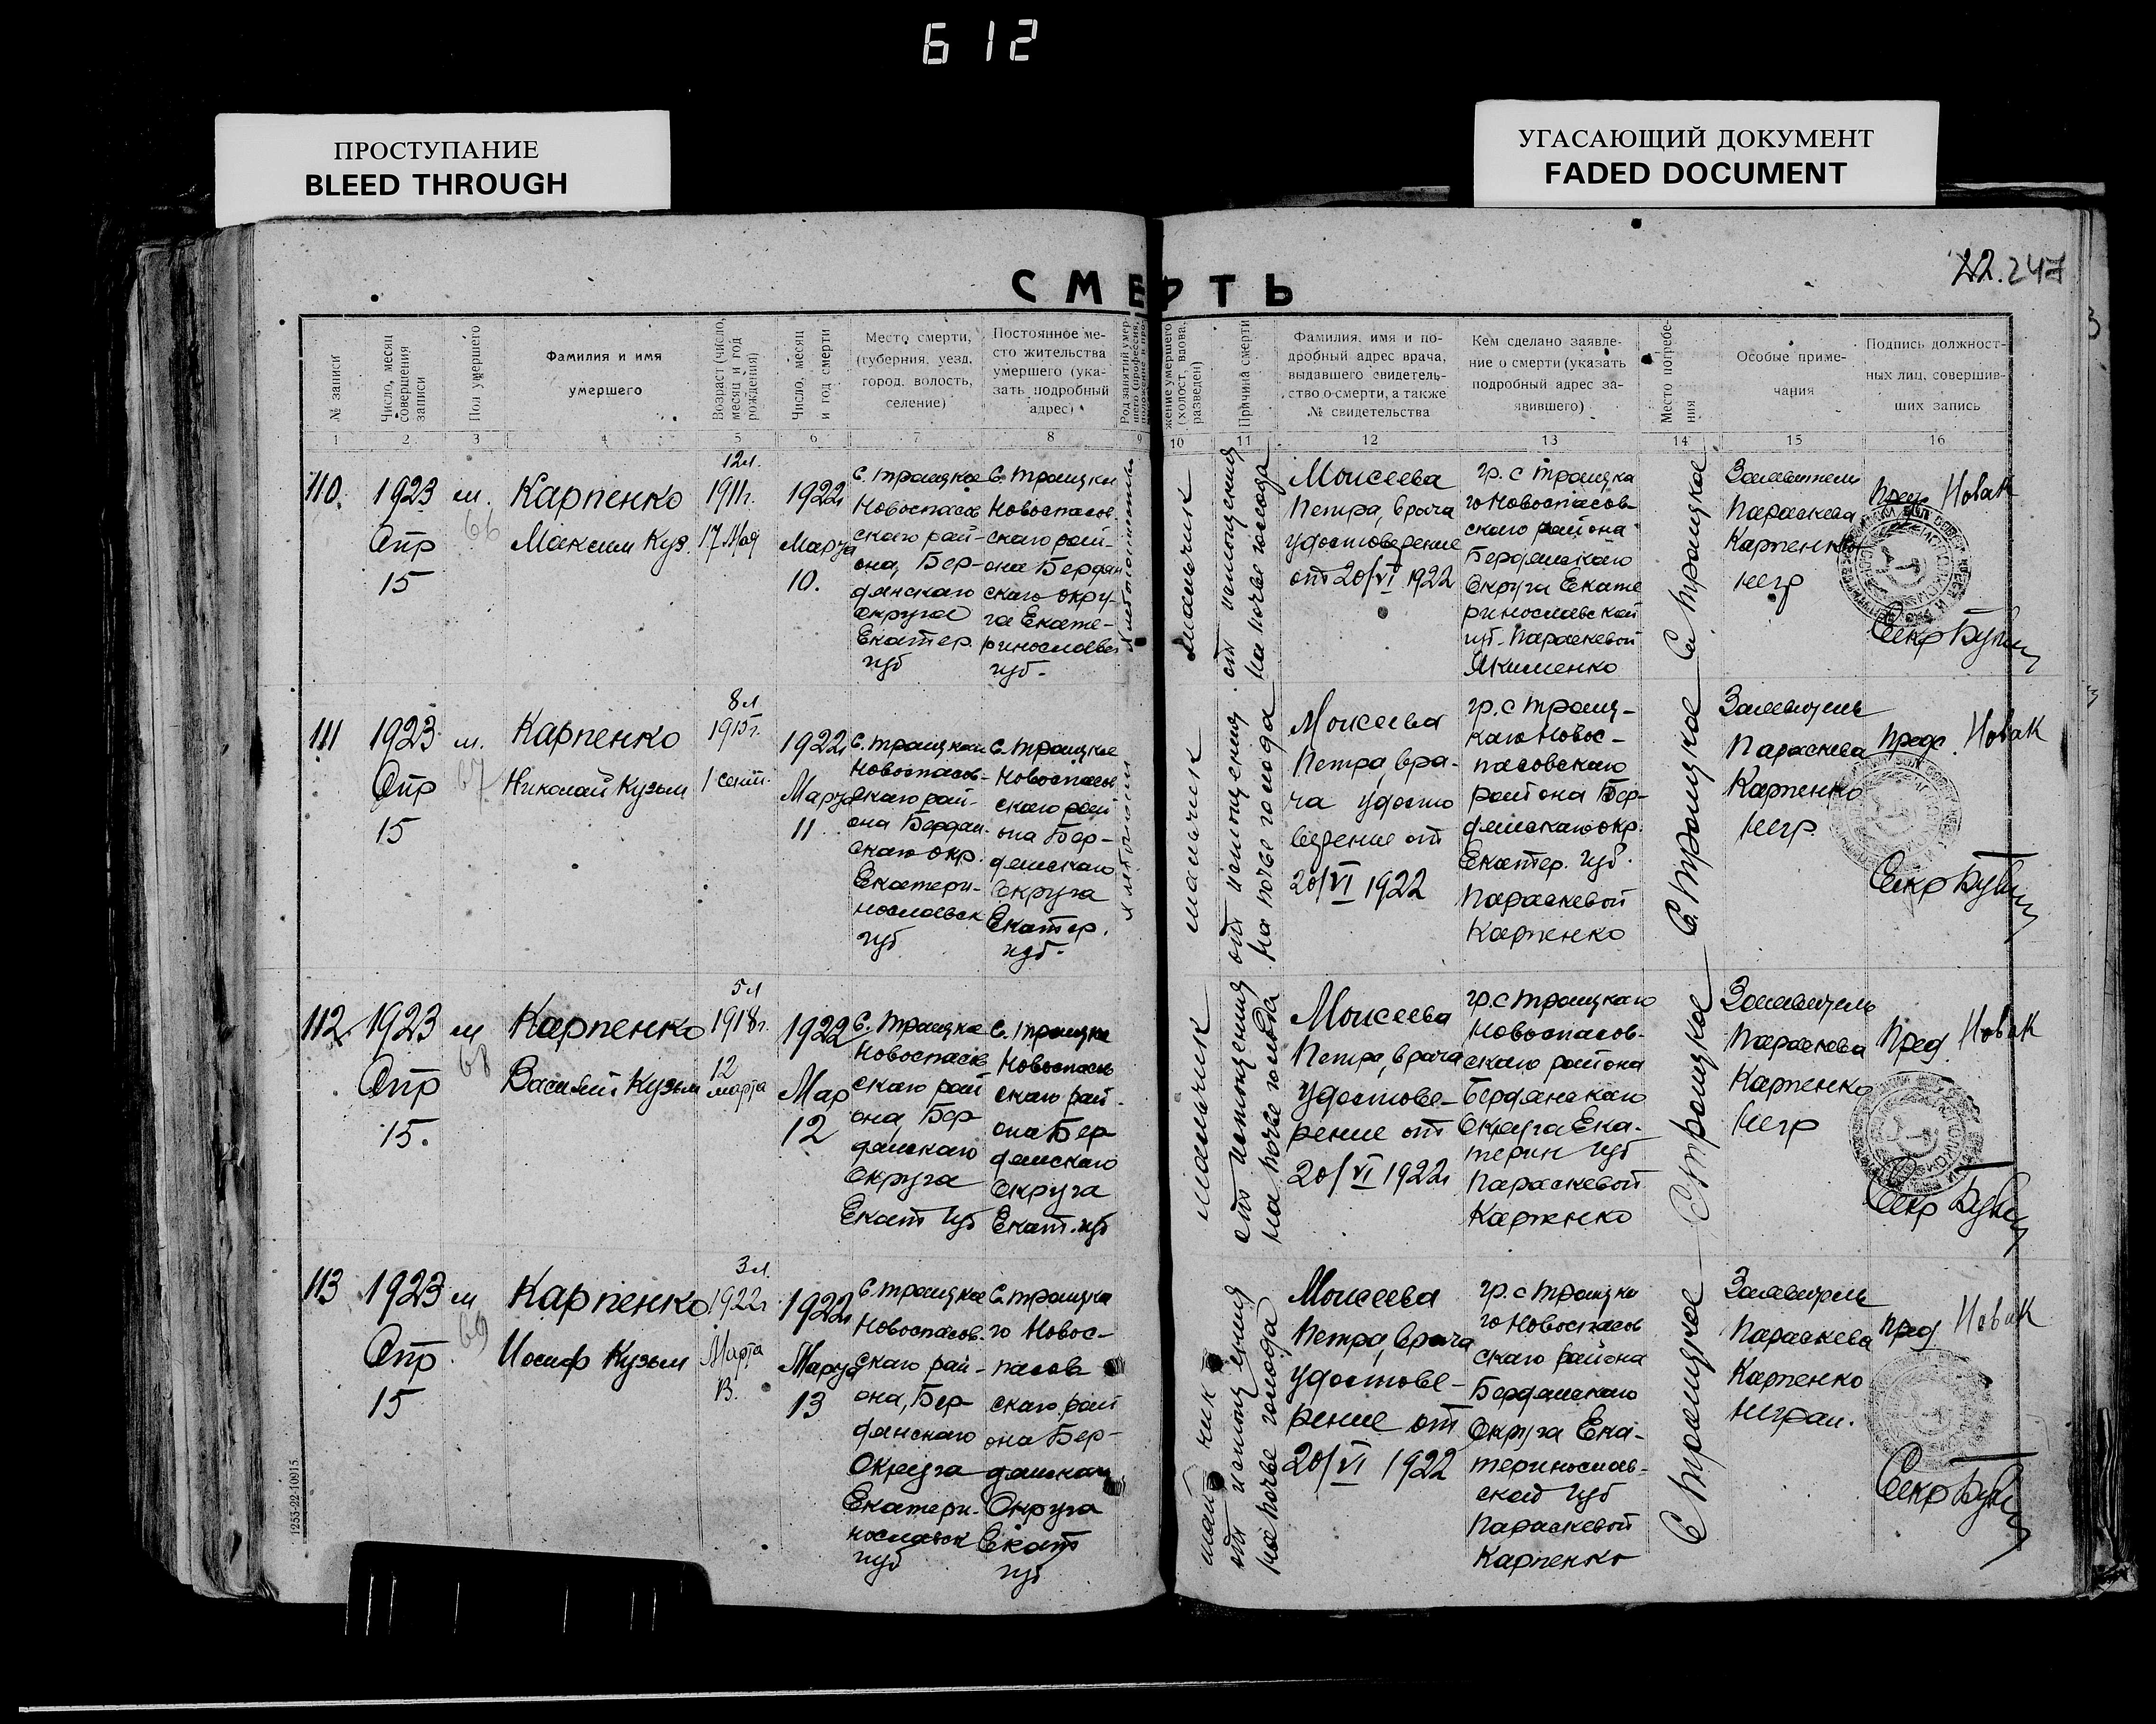 612
ПРОСТУПАНИЕ
BLEED THROUGH
УГАСАЮЩИЙ ДОКУМЕНТ
FADED DOCUMENT
22. 247
СМЕРТЬ
№ записи
Число, месяц
совершения
записи
Пол умершего
Фамилия и имя
умершего
Возраст (число,
месяц и год
рождения)
Число, месяц
и год смерти
Место смерти,
(губерния, уезд,
город, волость,
селение)
Постоянное ме-
сто жительства
умершего (ука-
зать подробный
адрес)
Род занятий умер-
шего (профессия,
жение умершего
(холост, вдова,
разведен)
Причина смерти
Фамилия, имя и по-
дробный адрес врача,
выдавшего свидетель-
ство о смерти, а также
№ свидетельства
Кем сделано заявле-
ние о смерти (указать
подробный адрес за-
явившего)
Место погребе-
ния
Особые приме-
чания
Подпись должност-
ных лиц, совершив-
ших запись
1 2 3 4 5 6 7 8 9 10 11 12 13 14 15 16
110.
1923
Апр
15
м.
66
Карпенко
Максим Куз.
12л.
1911г.
17 Мая
1922г
Марта
10.
с. Троицкое
Новоспасов
скаго рай-
она, Бер-
дянскаго
округа
Екатер.
губ
с. Троицки
Новоспасов
скаго рай-
она Бердян
скаго окру-
га Екате-
ринославс
губ.
Хлебопашество
мальчик
от истощения
на почве голода
Моисеева
Петра, врача
удостоверение
от 20/VI 1922
гр. с Троицка
го Новоспасов-
скаго района
Бердянскаго
Округа Екате
ринославской
губ. Параскевой
Якименко
с. Троицкое
Заявитель
Параскева
Карпенко
негр
Пред. Новак
Секр
111
1923
Апр
15
м.
67
Карпенко
Николай Кузьм
8л
1915г.
1 сент.
1922г
Марта
11
с. Троицкое
Новоспасов-
скаго рай-
она Бердян-
скаго окр.
Екатери-
нославск
губ
с. Троицкое
Новоспасов
скаго рай
она Бер-
дянскаго
Округа
Екатер.
губ.
мальчик
от истощения
на почве голода
Моисеева
Петра, вра-
ча удосто
верение от
20/VI 1922
гр. с Троиц-
каго Новос-
пасовскаго
района Бер-
дянскаго окр.
Екатер. губ.
Параскевой
Карпенко
с. Троицкое
Заявитель
Параскева
Карпенко
негр.
Предс. Новак
Секр
112
1923
Апр
15.
м
68
Карпенко
Василий Кузьм
5л
1918г.
12
марта
1922
Мар
12
с. Троицке
Новоспасов
скаго рай
она, Бер
дянскаго
округа
Екат губ
с. Троицке
Новоспасов
скаго рай-
она Бер-
дянскаго
Округа
Екат. губ
мальчик
от истощения
на почве голода
Моисеева
Петра, врача
удостове-
рение от
20/VI 1922г
гр. с Троицкаго
Новоспасов-
скаго района
Бердянскаго
Округа Ека-
терин губ
Параскевой
Карпенко
с Троицкое
Заявитель
Параскева
Карпенко
негр
Пред. Новак
Секр
113
1923
Апр.
15
м
69
Карпенко
Иосиф Кузьм
3л.
1922г
Марта
13.
1922г
Марта
13
с. Троицкое
Новоспасов-
скаго рай-
она, Бер-
дянскаго
Округа
Екатери-
нославск
губ
с. Троицка
го Новос-
пасов
скаго рай
она Бер-
дянскаго
Округа
Екат
губ
мальчик
от истощения
на почве голода
Моисеева
Петра, врача
удостове-
рение от
20/VI 1922
гр. с Троицка
го Новоспасов
скаго района
Бердянскаго
Округа Ека-
теринослав-
ской губ
Параскевой
Карпенко
с Троицкое
Заявитель
Параскева
Карпенко
неграм.
Пред Новак
Секр
1253-22-10915.